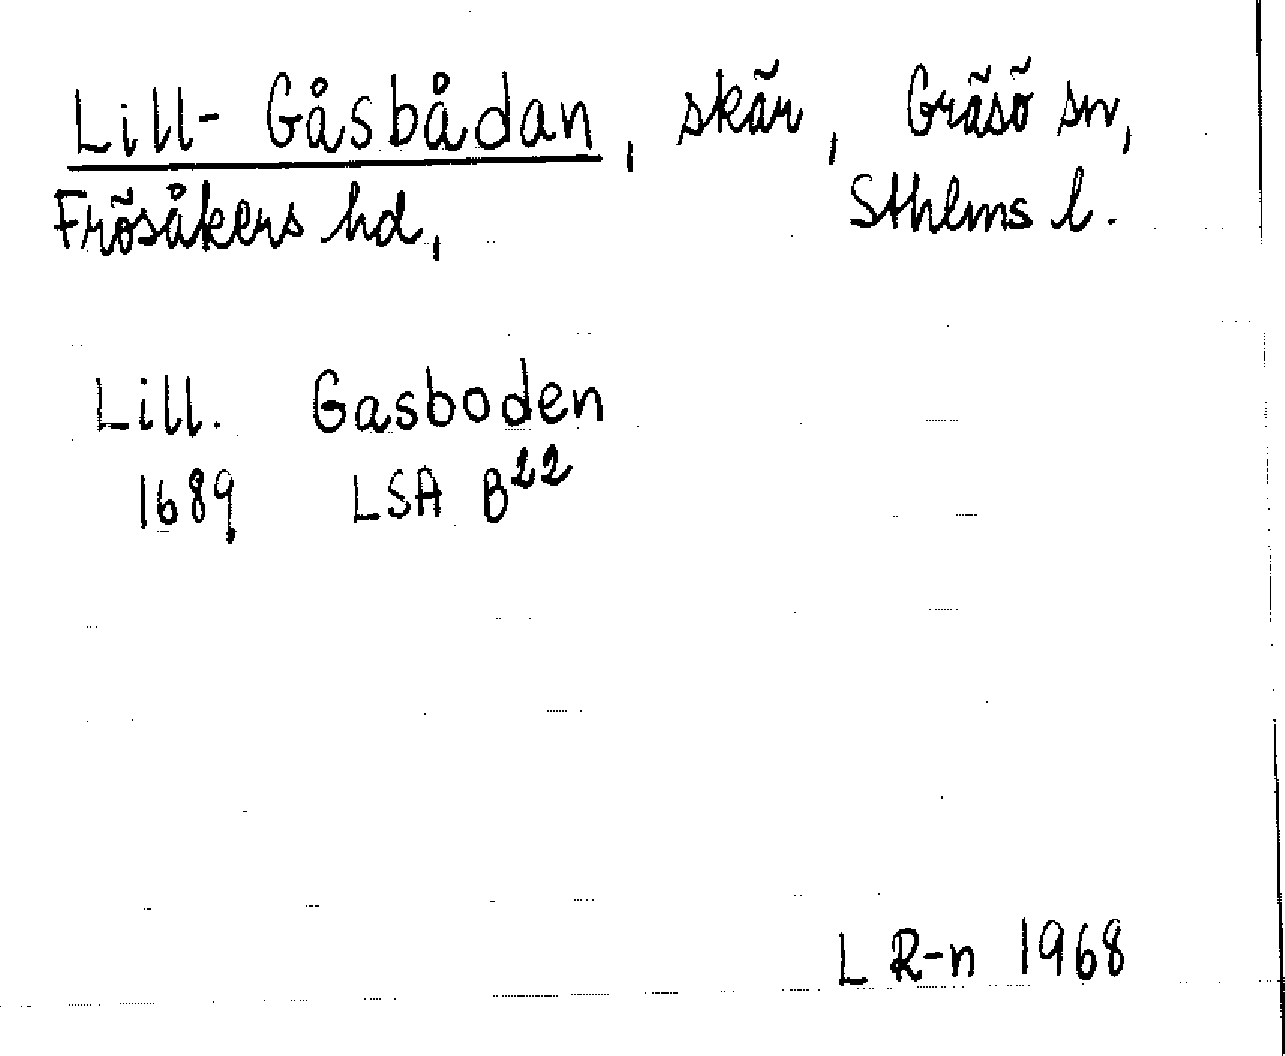 Lill-Gåsbådan, skär, Gräsö sn,
Frösåkers hd, Sthlms l.
Lill. Gasboden
1689 LSA B22
L R-n 1968